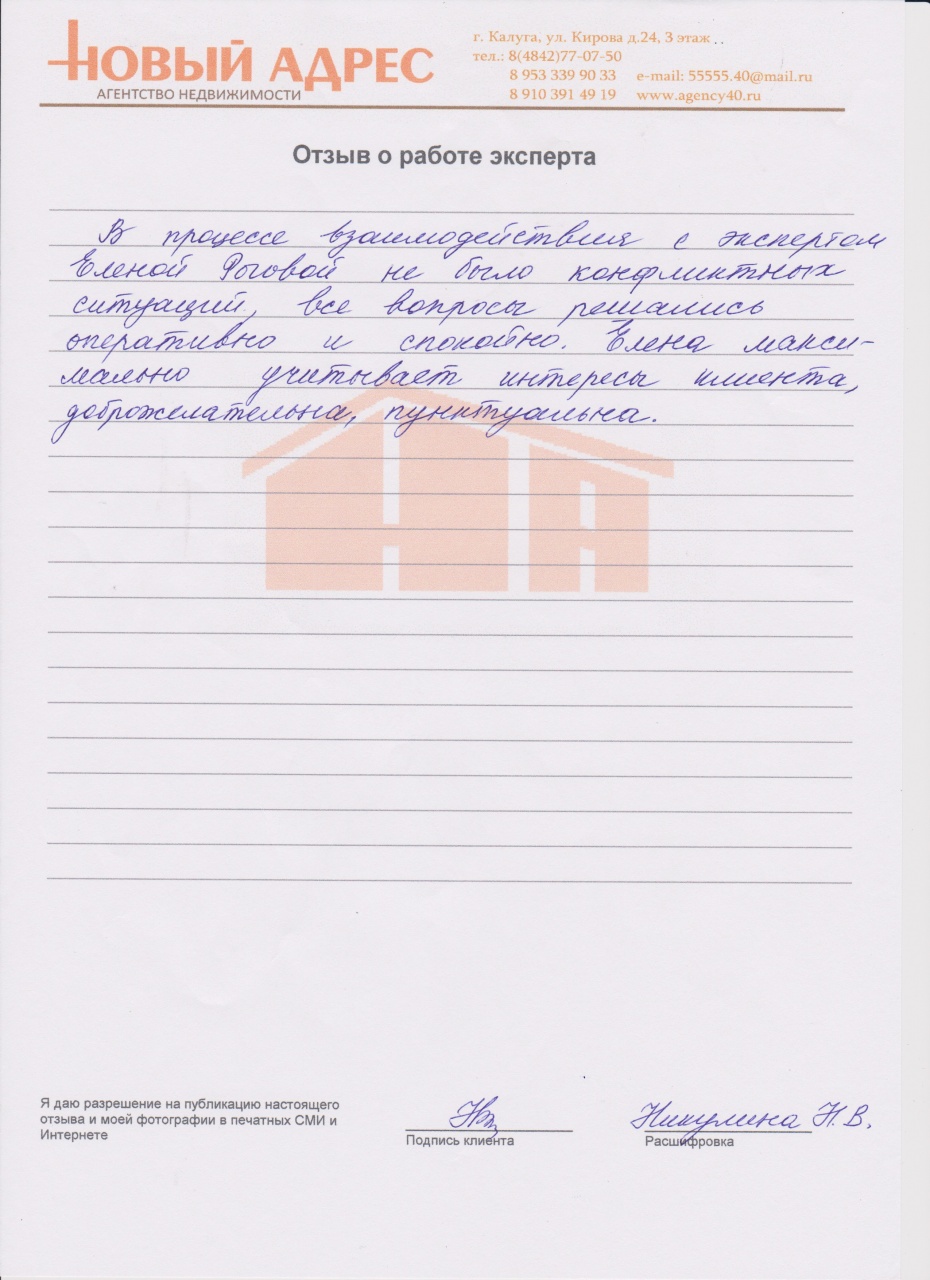 НОВЫЙ АДРЕС
АГЕНТСТВО НЕДВИЖИМОСТИ
г. Калуга, ул. Кирова д.24, 3 этаж
тел.: 8(4842)77-07-50
8 953 339 90 33 e-mail: 55555.40@mail.ru
8 910 391 49 19 www.agency40.ru
Отзыв о работе эксперта
В процессе взаимодействия с экспертом
Еленой Роговой не было конфликтных
ситуаций, все вопросы решались
оперативно и спокойно. Елена макси-
мально учитывает интересы клиента,
доброжелательна, пунктуальна.
НА
Я даю разрешение на публикацию настоящего
отзыва и моей фотографии в печатных СМИ и
Интернете
Подпись клиента
Никулина Н.В.
Расшифровка